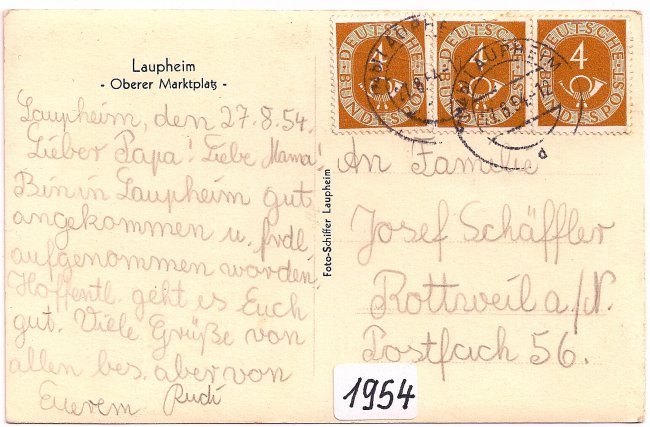 Laupheim
- Oberer Marktplatz -
Laupheim, den 27.8.54.
Lieber Papa! Liebe Mama!
Bin in Laupheim gut
angekommen u. frdl.
aufgenommen worden.
Hoffentl. geht es Euch
gut. Viele Grüße von
allen bes. aber von
Euerem Rudi
Foto-Schiffer Laupheim
DEUTSCHE BUNDESPOST
4
DEUTSCHE BUNDESPOST
4
DEUTSCHE BUNDESPOST
4
LAUPHEIM
An Familie
Josef Schäffler
Rottweil a/N.
Postfach 56.
1954